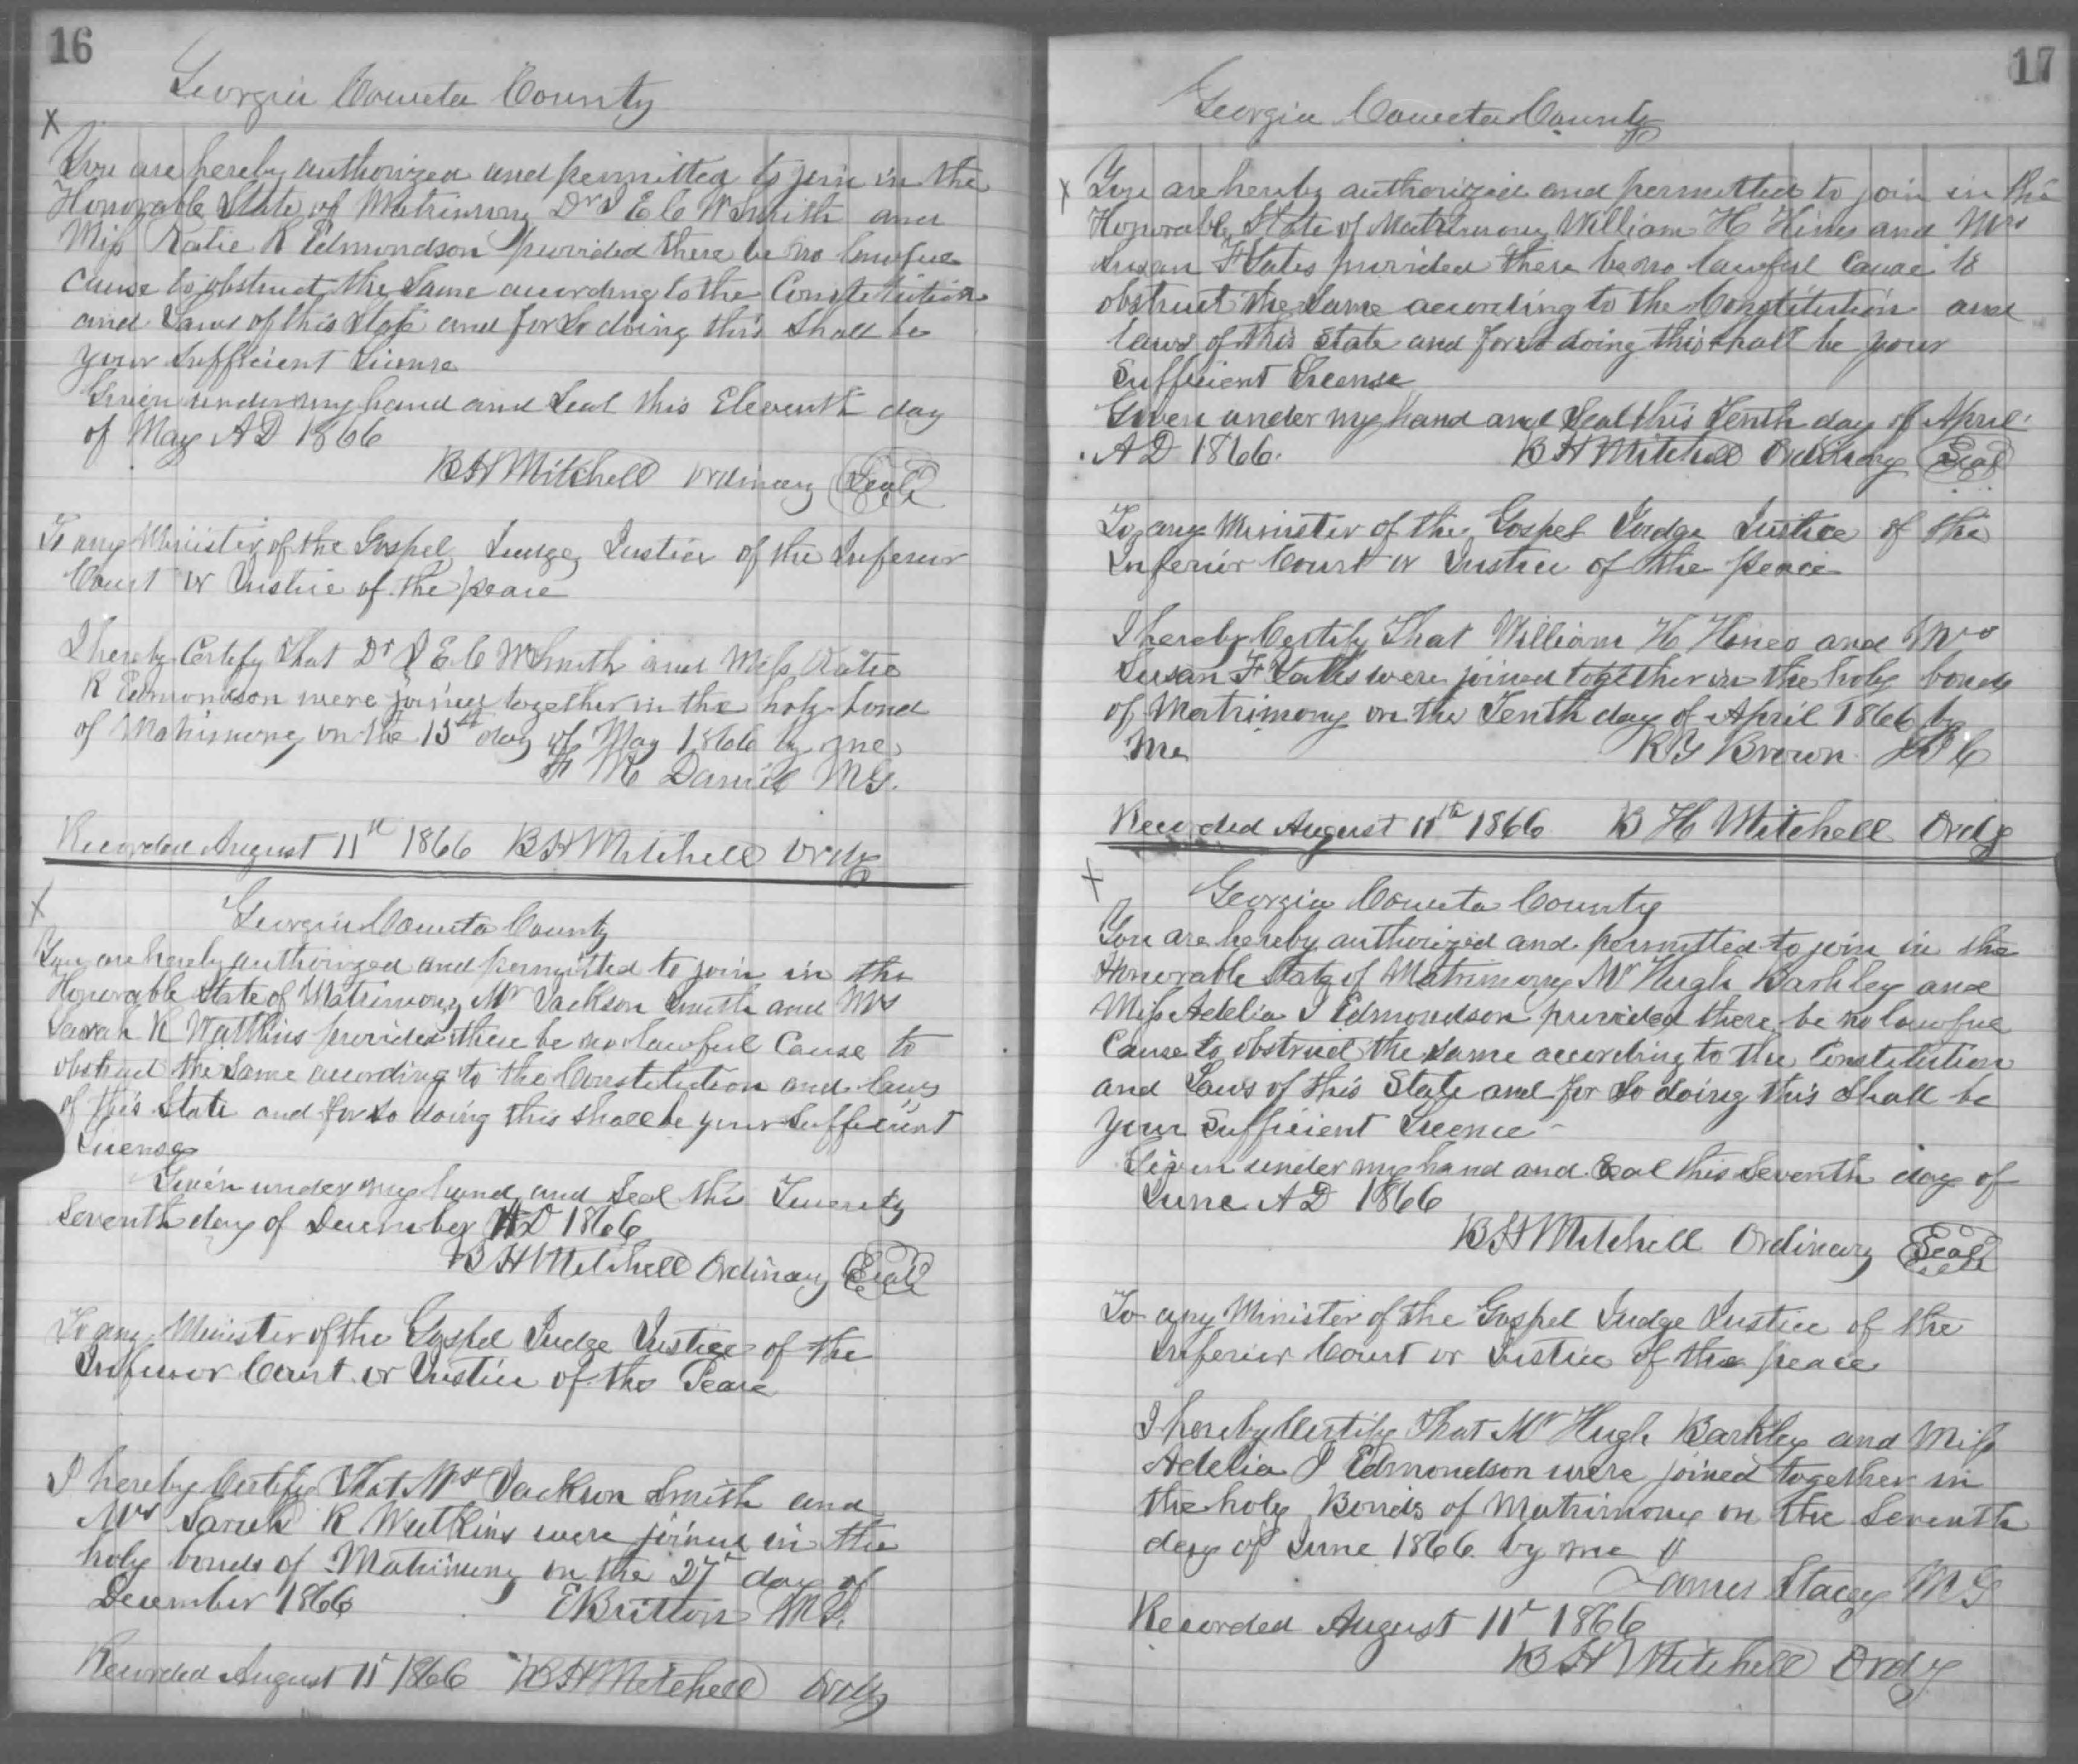 16
Georgia Coweta County
X
You are hereby authorized and permitted to join in the
Honorable State of Matrimony Dr I E C W Smith and
Miss Katie R Edmondson provided there be no lawful
cause to obstruct the same according to the Constitution
and laws of this State and for so doing this shall be
your sufficient License
Given under my hand and seal this Eleventh day
of May AD 1866
B H Mitchell Ordinary Seal
To any Minister of the Gospel, Judge, Justice of the Inferior
Court or Justice of the peace
I hereby Certify that Dr I E C W Smith and Miss Katie
R Edmondson were joined together in the holy bond
of Matrimony on the 15th day of May 1866 by me
F M Daniel MG.
Recorded August 11th 1866 B H Mitchell Ordy
X
Georgia Coweta County
You are hereby authorized and permitted to join in the
Honorable State of Matrimony Mr Jackson Smith and Mrs
Sarah R Watkins provided there be no lawful Cause to
obstruct the same according to the Constitution and laws
of this State and for so doing this shall be your sufficient
License
Given under my hand and seal this Twenty
Seventh day of December AD 1866
B H Mitchell Ordinary Seal
To any Minister of the Gospel Judge Justice of the
Inferior Court or Justice of the Peace
I hereby Certify that Mr Jackson Smith and
Mrs Sarah R Watkins were joined in the
holy bonds of Matrimony on the 27th day of
December 1866 E Britton
Recorded August 11th 1866 B H Mitchell Ordy
17
Georgia Coweta County
X You are hereby authorized and permitted to join in the
Honorable State of Matrimony William H Hines and Mrs
Susan F Yates provided there be no lawful cause to
obstruct the same according to the Constitution and
laws of this State and for so doing this shall be your
Sufficient License
Given under my hand and Seal this Tenth day of April
AD 1866. B H Mitchell Ordinary Seal
To any Minister of the Gospel Judge Justice of the
Inferior Court or Justice of the peace
I hereby Certify That William H Hines and Mrs
Susan F Yates were joined together in the holy bonds
of Matrimony on the Tenth day of April 1866 by
Me R Y Brown
Recorded August 11th 1866 B H Mitchell Ordy
X
Georgia Coweta County
You are hereby authorized and permitted to join in the
Honorable State of Matrimony Mr Hugh Barkley and
Miss Adelia J Edmondson provided there be no lawful
Cause to obstruct the same according to the Constitution
and Laws of this State and for so doing this shall be
your Sufficient License
Given under my hand and Seal this Seventh day of
June AD 1866
B H Mitchell Ordinary Seal
To any Minister of the Gospel Judge Justice of the
Inferior Court or Justice of the peace
I hereby Certify that Mr Hugh Barkley and Miss
Adelia J Edmondson were joined together in
the holy Bonds of Matrimony on the Seventh
day of June 1866 by me
James Stacey MG
Recorded August 11th 1866
B H Mitchell Ordy